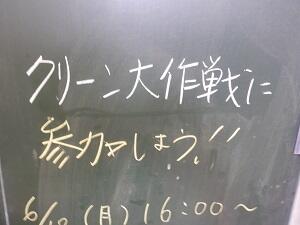 クリーン大作戦に
参加しよう!!
6/10 (月) 16:00〜